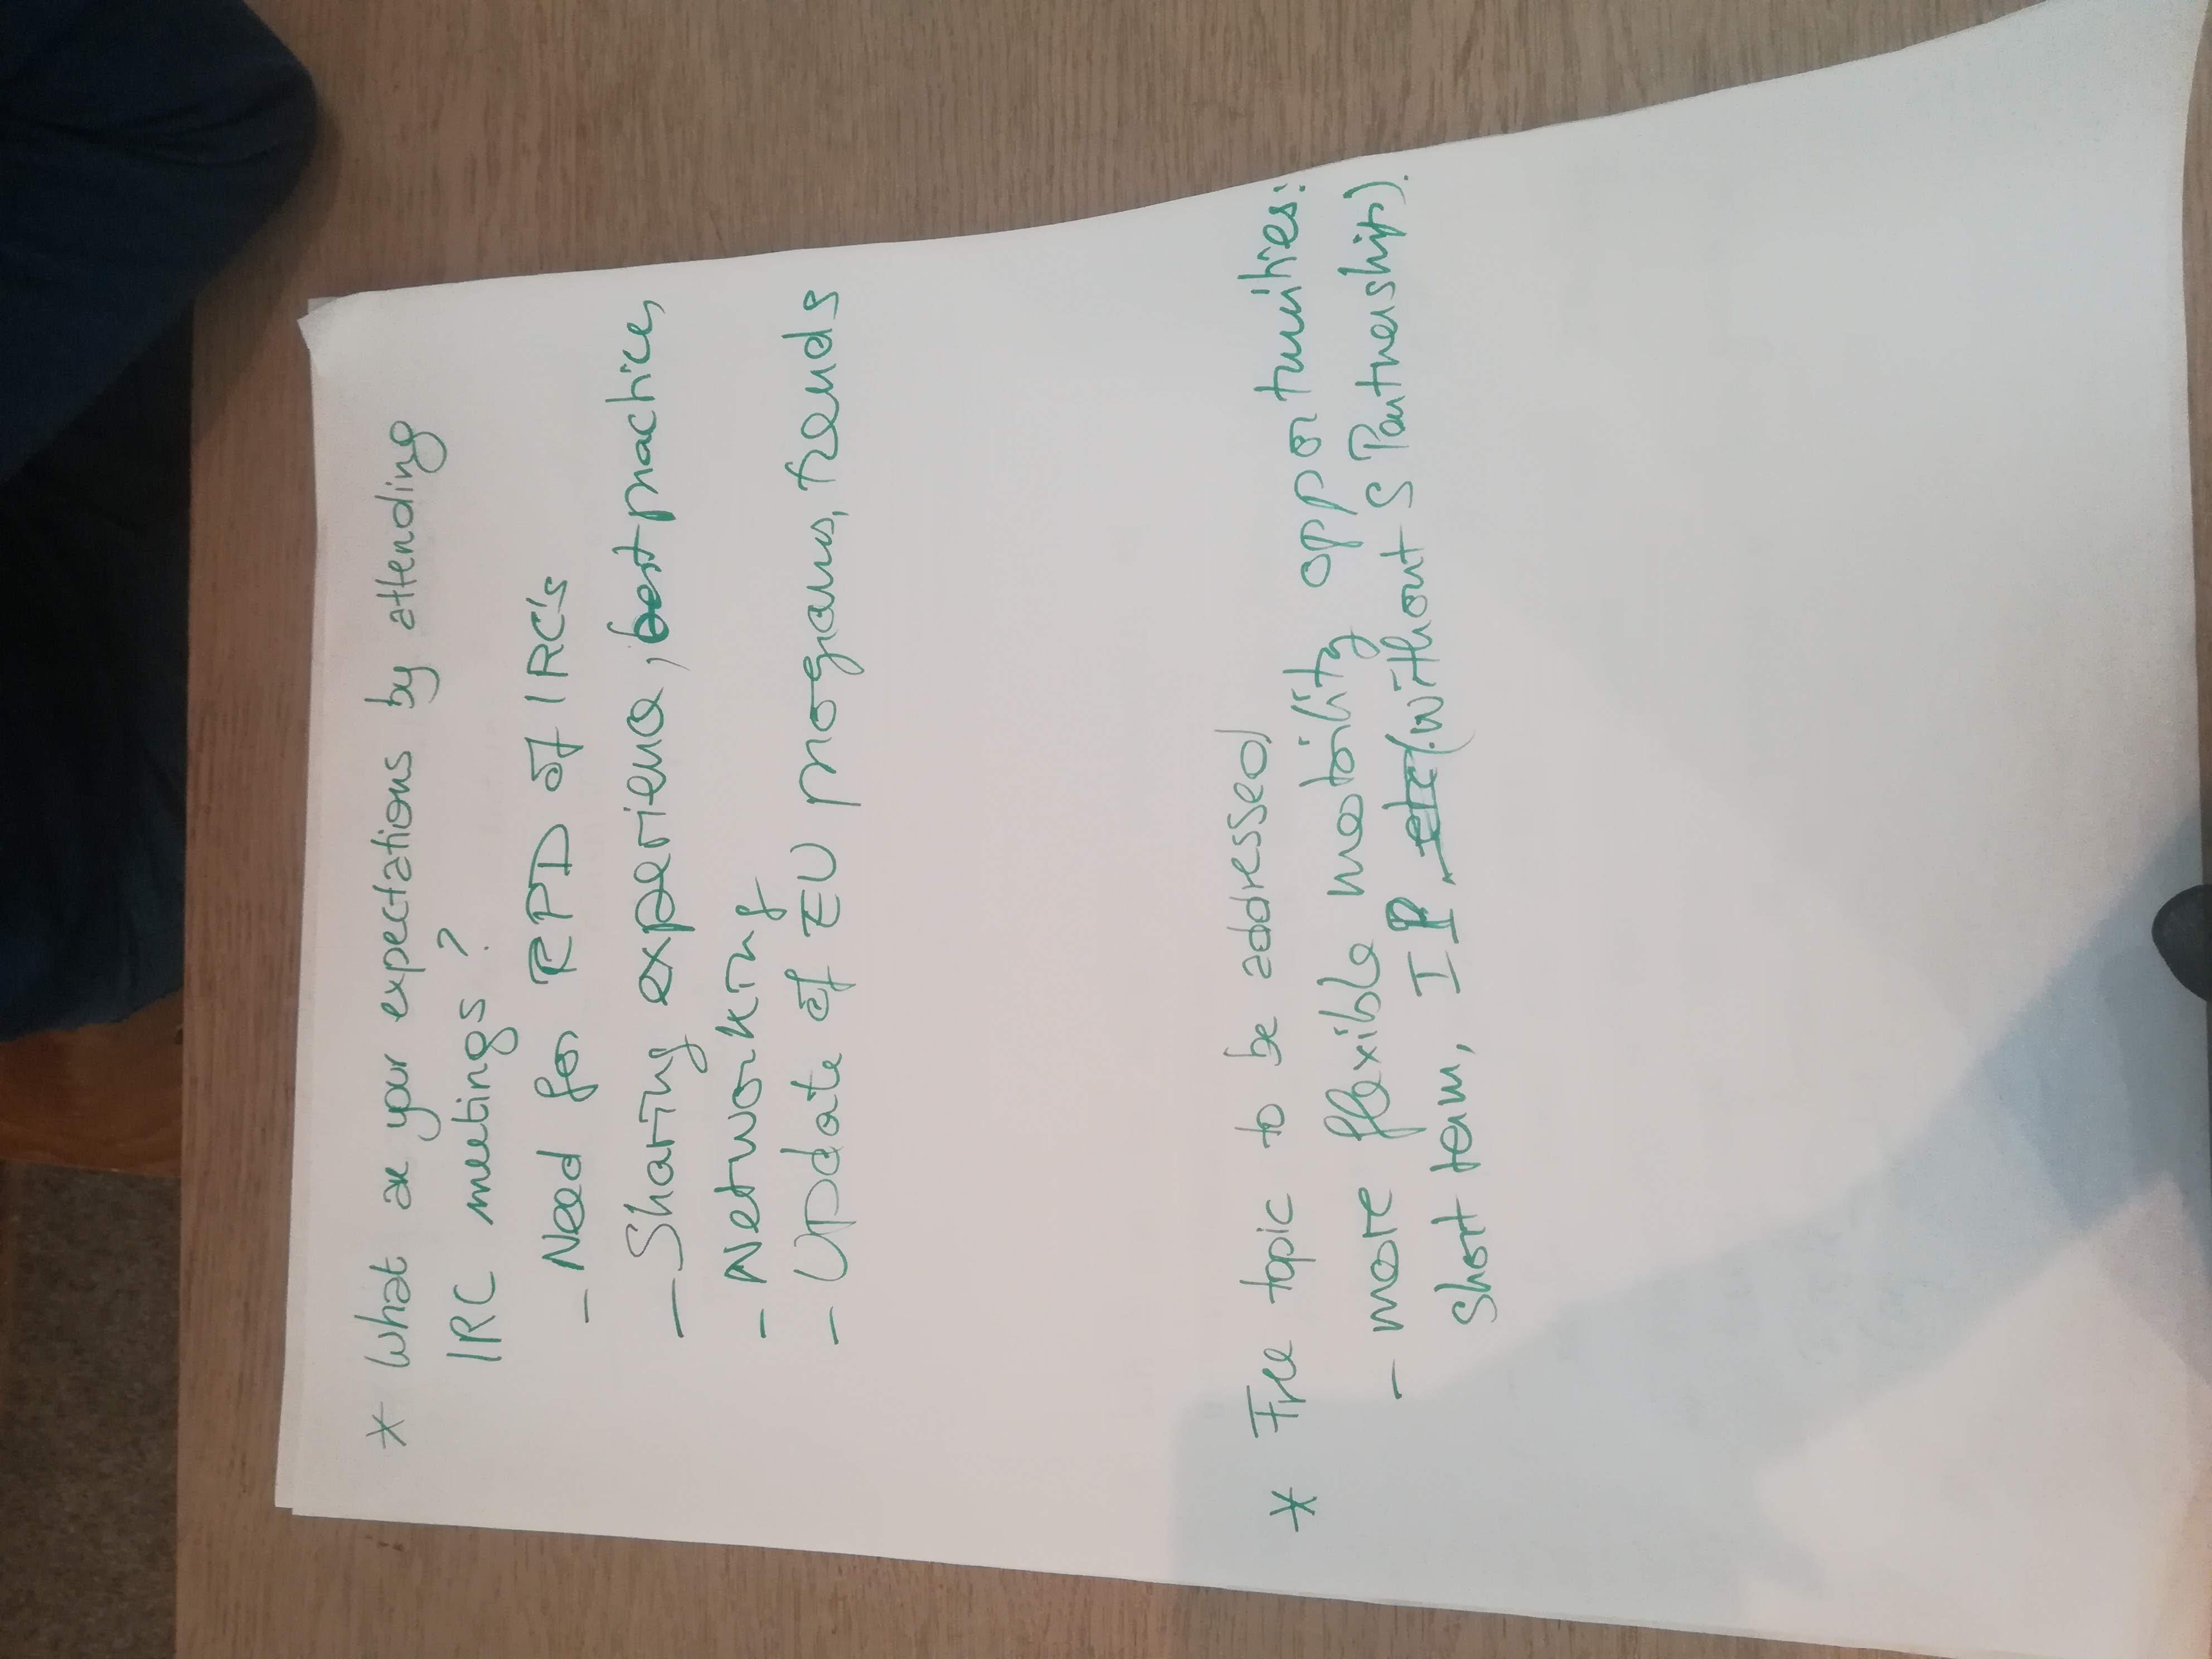 * What are your expectations by attending
IRC meetings ?
- Need for RPD of IRC's
- Sharing experience, best practices,
- Networking
- Update of EU programs, trends
* Free topic to be addressed
- more flexible mobility opportunities:
short term, IP (without S Partnership).